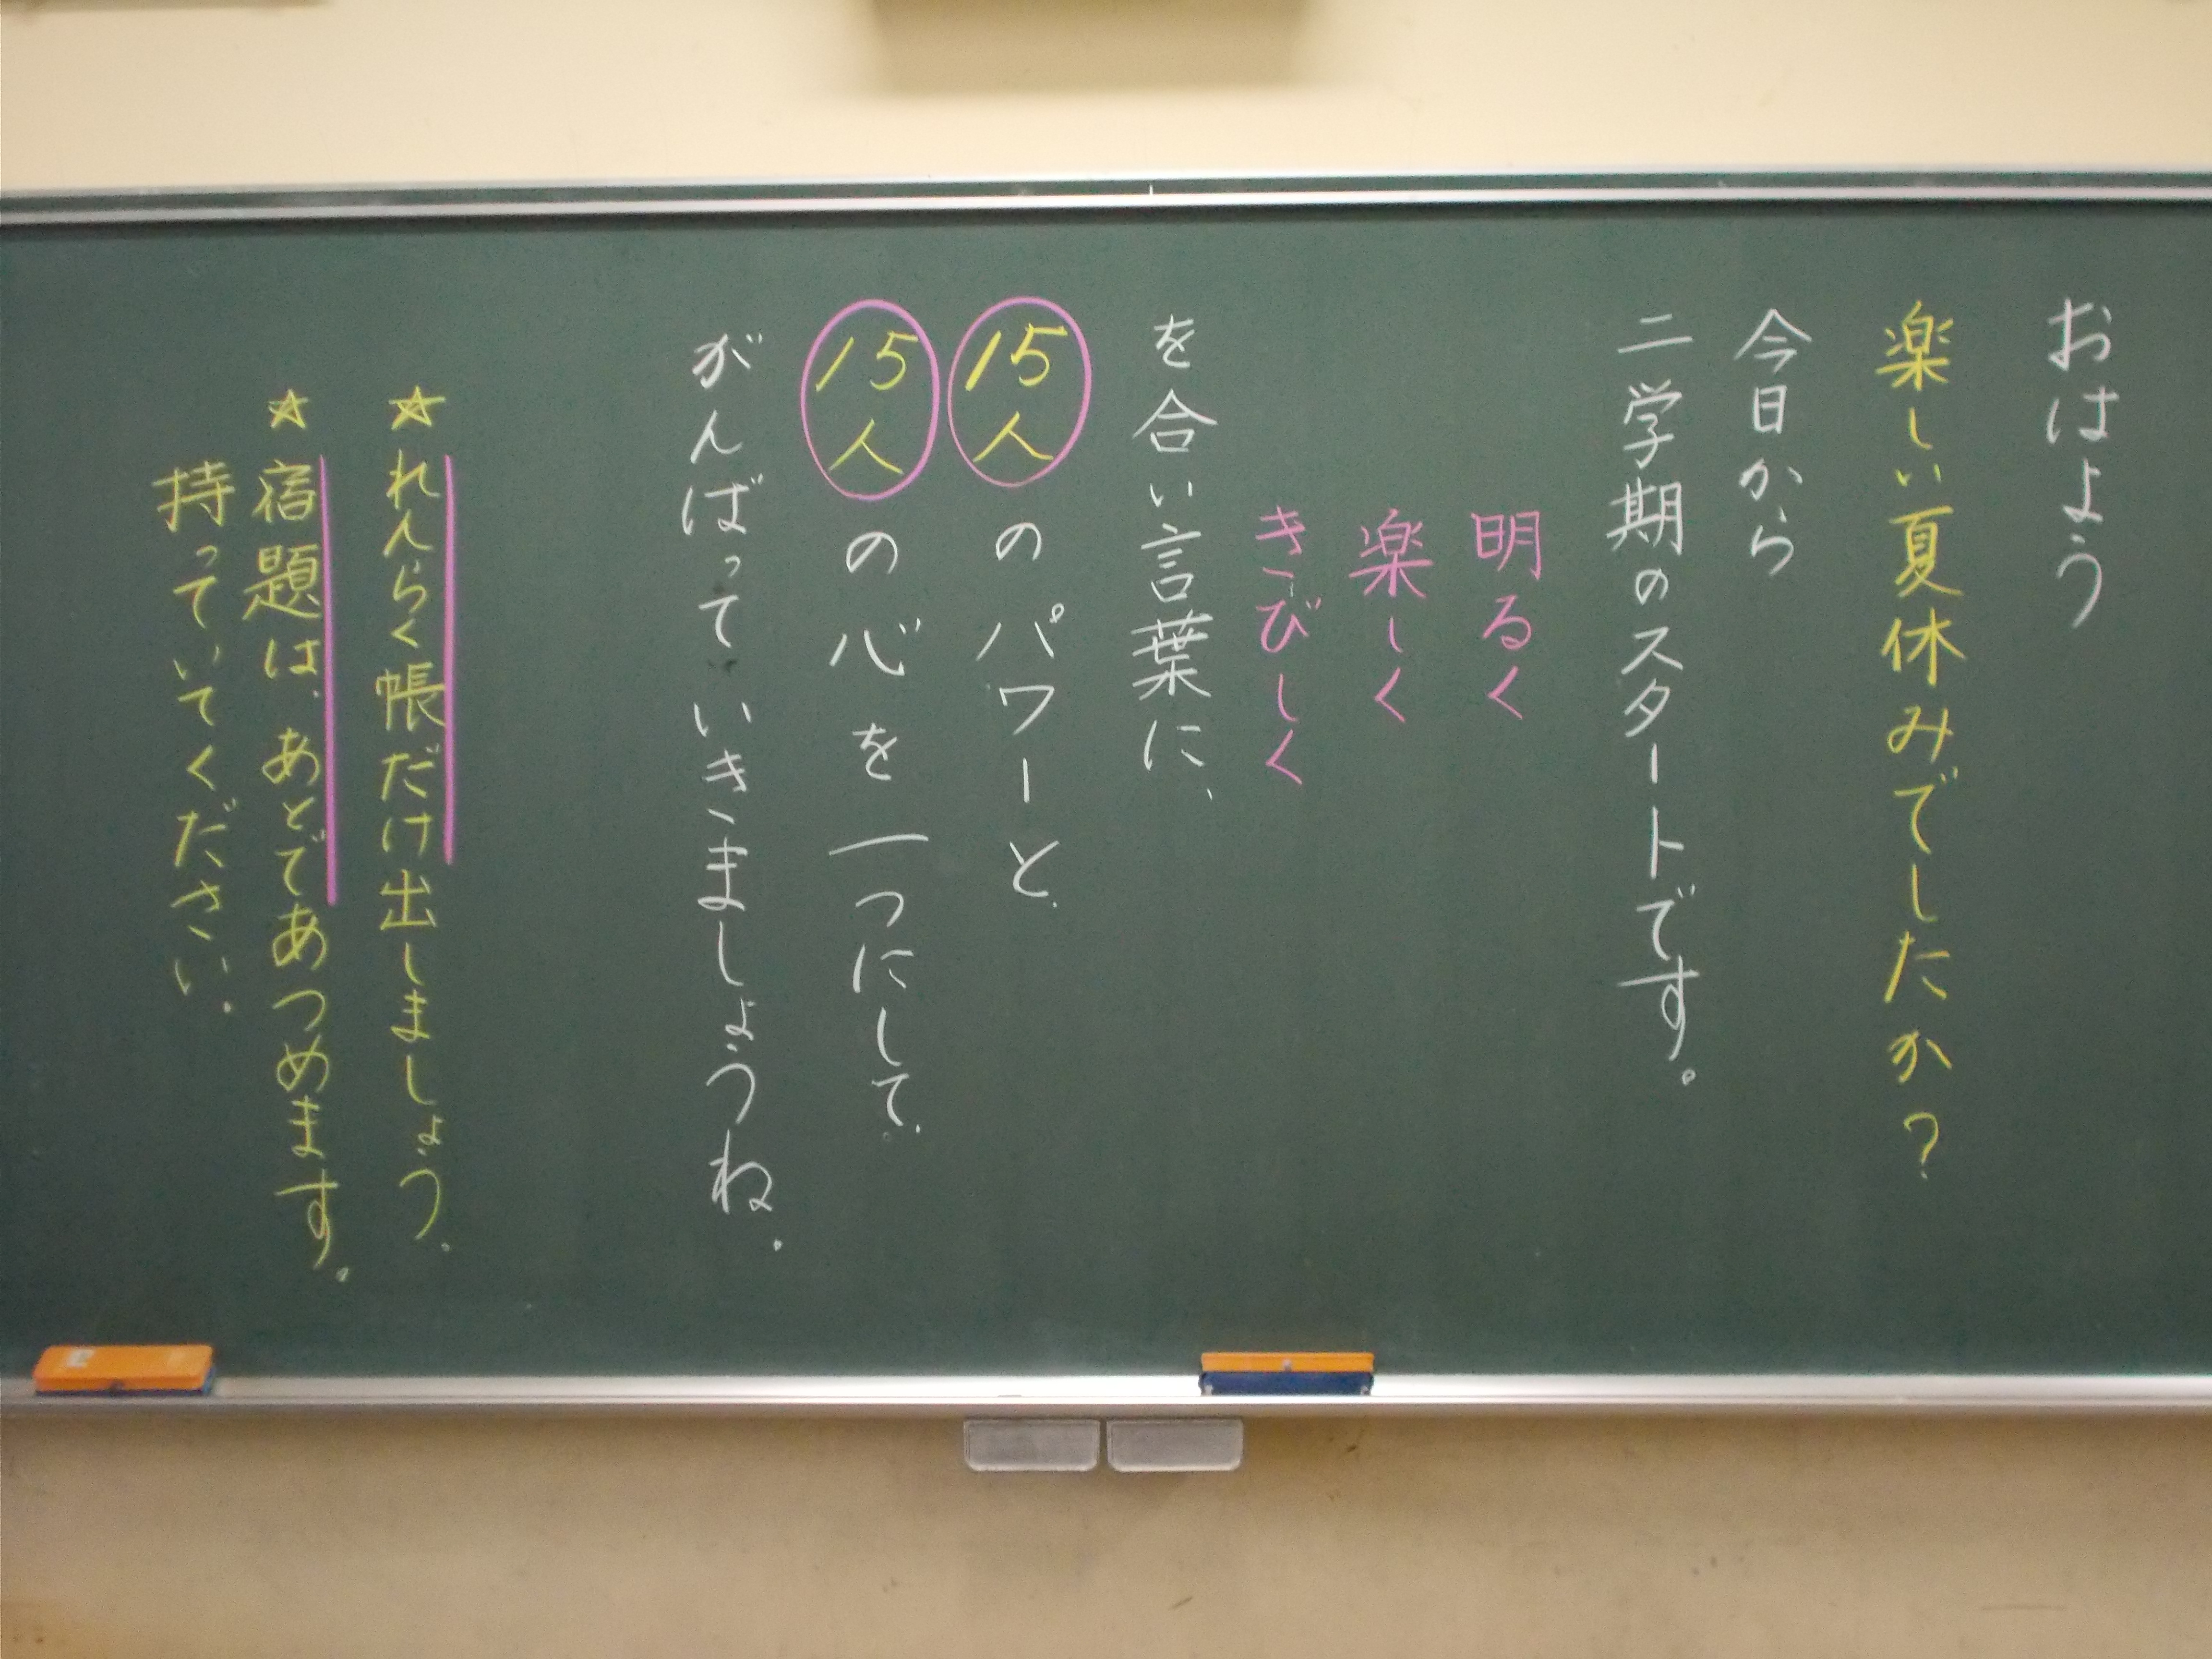 おはよう
楽しい夏休みでしたか？
今日から
二学期のスタートです。
明るく
楽しく
きびしく
を合い言葉に、
15人のパワーと
15人の心を一つにして
がんばっていきましょうね。
☆れんらく帳だけ出しましょう。
☆宿題は、あとであつめます。
持っていてください。